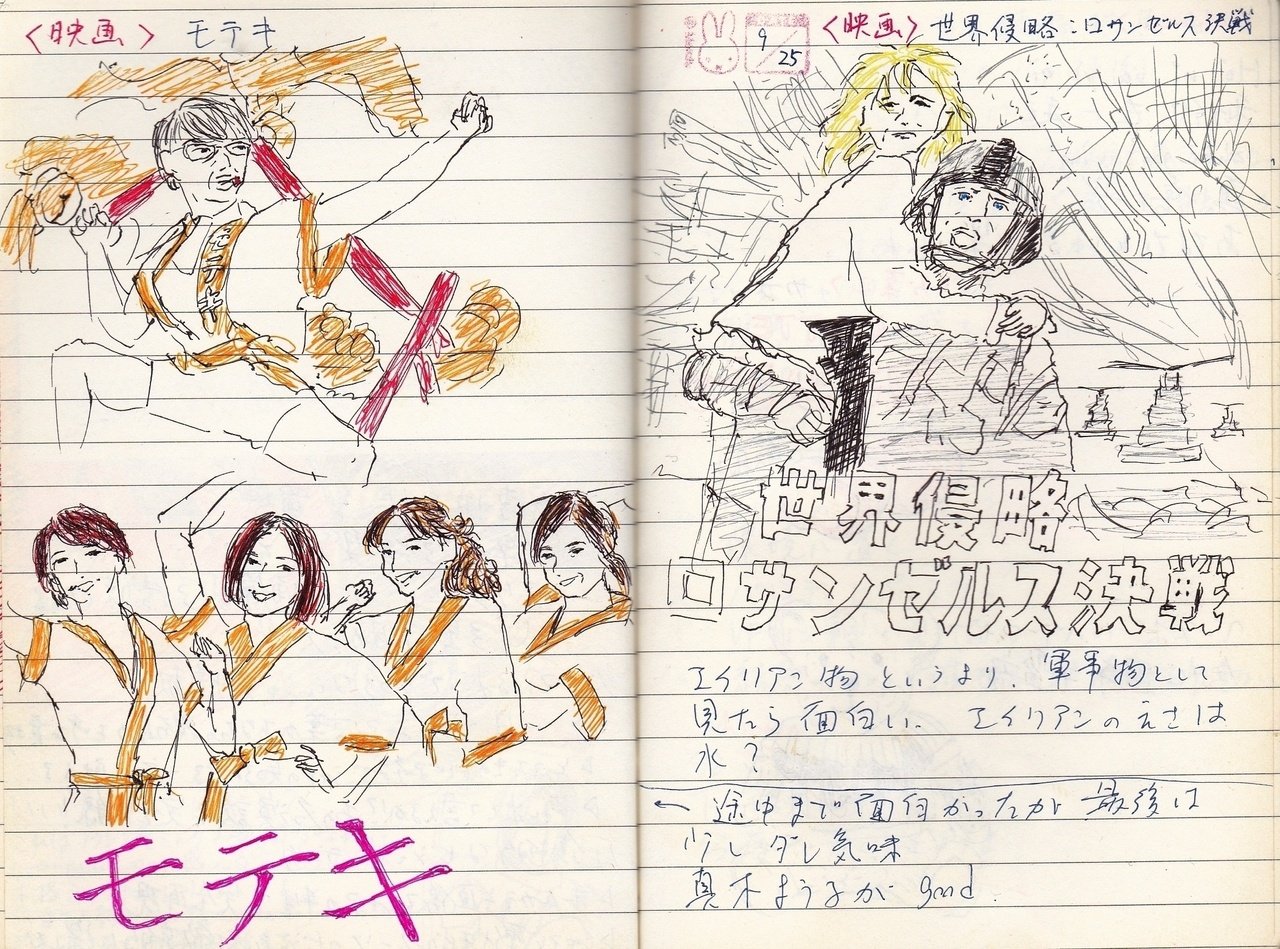 <映画> モテキ
モテキ
モテキ
9/25
<映画> 世界侵略:ロサンゼルス決戦
世界侵略
ロサンゼルス決戦
エイリアン物というより、軍事物として
見たら面白い。 エイリアンのえさは
水?
← 途中まで面白かったが 最後は
少しダレ気味
真木ようこが good.